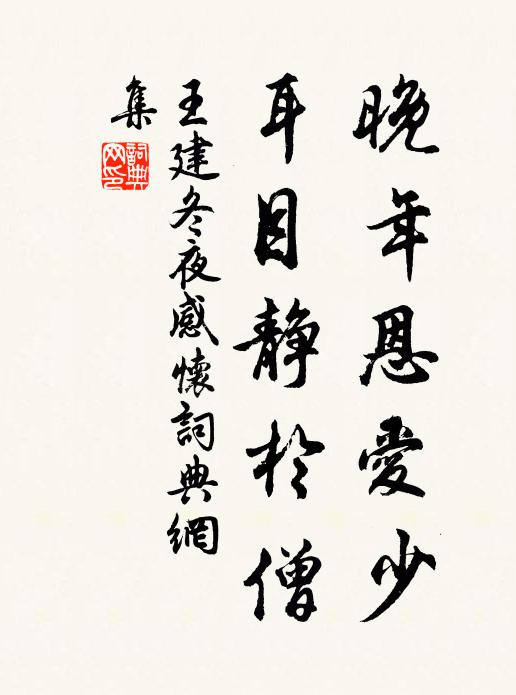 晚年恩愛少
耳目静於僧
王建冬夜感懷詞典網
集
詞典
网印